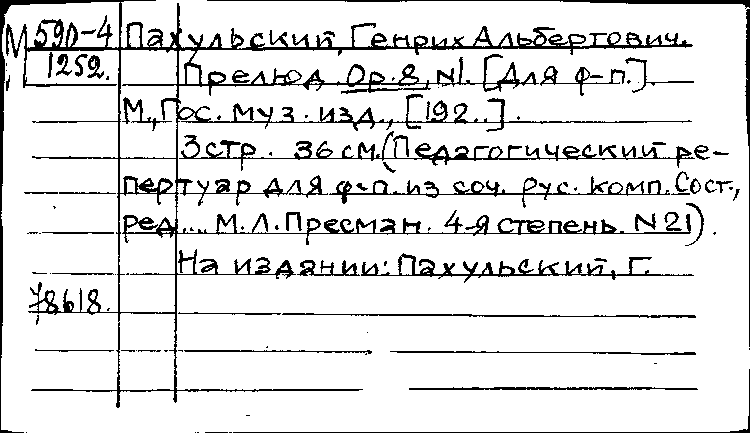 М 590-4 Пахульский, Генрих Альбертович.
1252. Прелюд Ор. 8, N1. [Для ф-п.].
М., Гос. муз. изд., [192..].
3 стр. 36 см. (Педагогический ре-
пертуар для ф-п. из соч. рус. комп. Сост.,
ред.... М. Л. Пресман. 4-я степень. N 21).
На издании: Пахульский, Г.
78618.